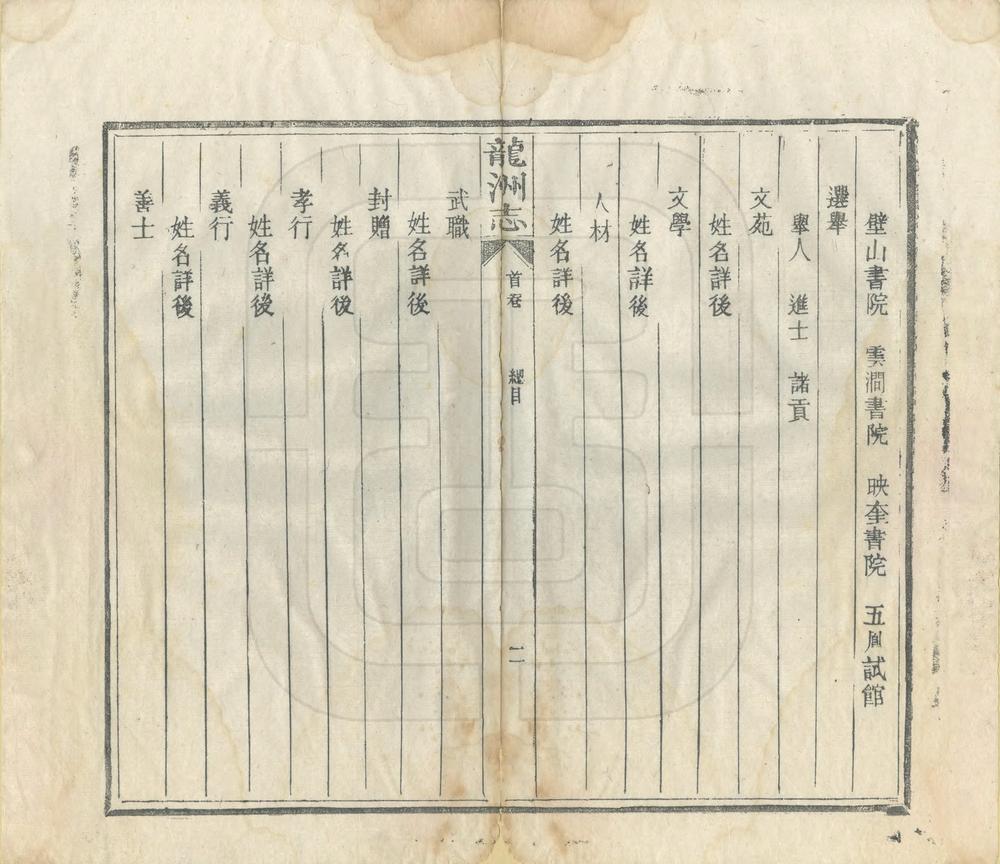 璧山書院　雲澗書院　映奎書院　五鳳試館
選舉
舉人　進士　諸貢
文苑
姓名詳後
文學
姓名詳後
人材
姓名詳後
龍洲志　首卷　總目　二
武職
姓名詳後
封贈
姓名詳後
孝行
姓名詳後
義行
姓名詳後
善士